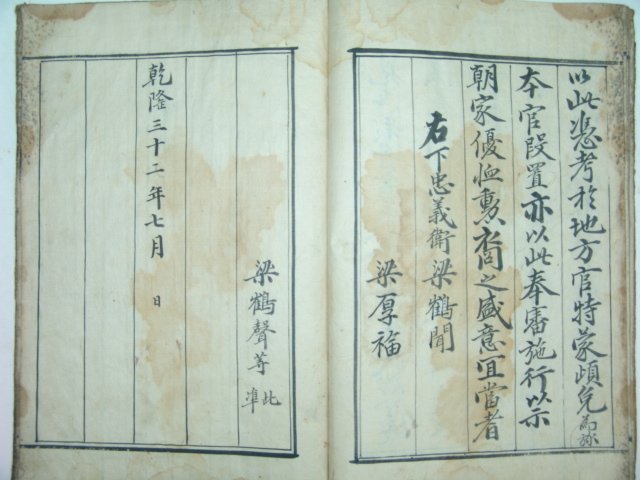 以此憑考於地方官特蒙頉免爲旀
本官段置亦以此奉審施行以示
朝家優恤勳裔之盛意宜當者
右下忠義衛梁鶴聞
梁厚福
梁鶴聲等 此準
乾隆三十二年七月 日